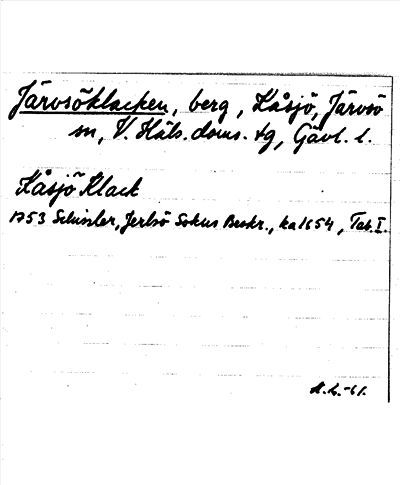 Järvsöklacken, berg, Kåsjö, Järvsö
sn, V. Häls. doms. tg, Gävl. l.
Kåsjö Klack
1753 Schissler, Jerfsö Sokns Beskr., ka 1654, Tab. I.